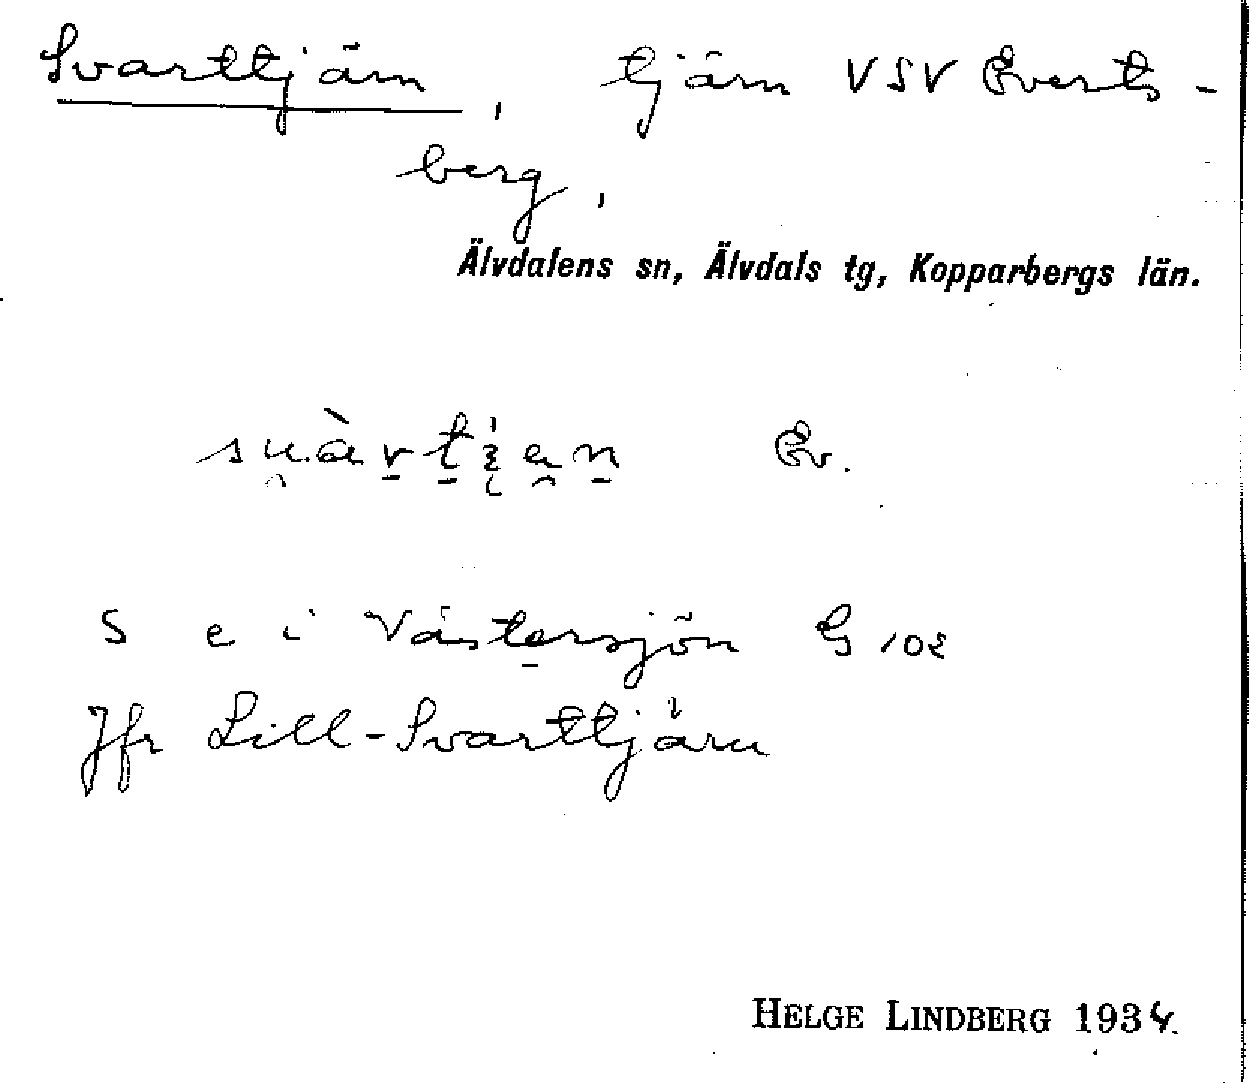 Svarttjärn, tjärn VSV Everts-
berg,
Älvdalens sn, Älvdals tg, Kopparbergs län.
Ev.
S e i Västersjön G 102
Jfr Lill-Svarttjärn
HELGE LINDBERG 1934.